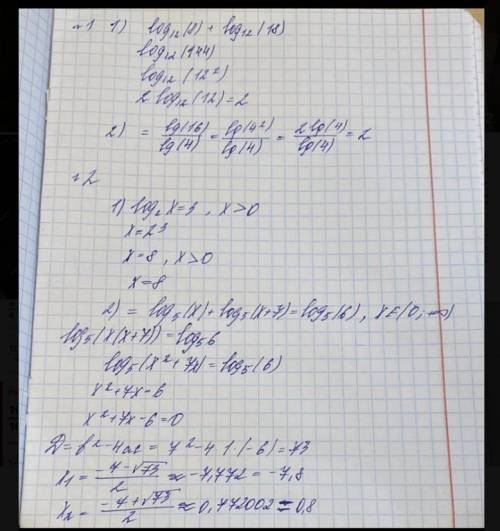 №1 1) log₁₂(8) + log₁₂(18)
log₁₂(144)
log₁₂(12²)
2 log₁₂(12) = 2
2) = lg(16)/lg(4) = lg(4²)/lg(4) = 2lg(4)/lg(4) = 2
№2
1) log₂ x = 3 , x > 0
x = 2³
x = 8 , x > 0
x = 8
2) = log₅(x) + log₅(x+7) = log₅(6) , x ∈ (0; +∞)
log₅(x(x+7)) = log₅6
log₅(x² + 7x) = log₅(6)
x² + 7x - 6
x² + 7x - 6 = 0
D = b² - 4ac = 7² - 4·1·(-6) = 73
x₁ = (-7 - √73)/2 ≈ -7,772 = -7,8
x₂ = (-7 + √73)/2 ≈ 0,772002 = 0,8